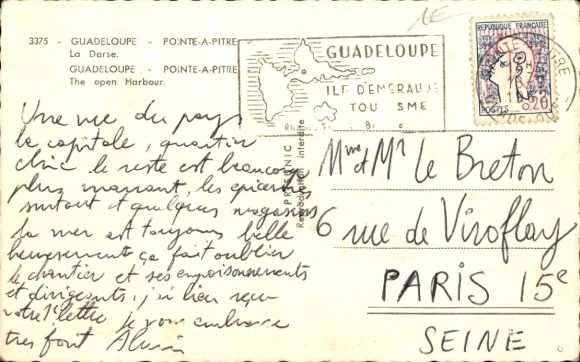 3375 - GUADELOUPE - POINTE-A-PITRE
La Darse.
GUADELOUPE - POINTE-A-PITRE
The open Harbour.
GUADELOUPE
ILE D'EMERAUDE
TOU SME
REPUBLIQUE FRANÇAISE
POSTES 0,20
Reproduction interdite
Une vue du pays
la capitale, quartier
chic le reste est beaucoup
plus marrant, les épiceries
surtout et quelques magasins
la mer est toujours belle
heureusement ça fait oublier
le chantier et ses empoisonnements
et dirigeants, j'ai bien reçu
votre 1e lettre je vous embrasse
très fort Alain
Mme et Mr le Breton
6 rue de Viroflay
PARIS 15e
SEINE